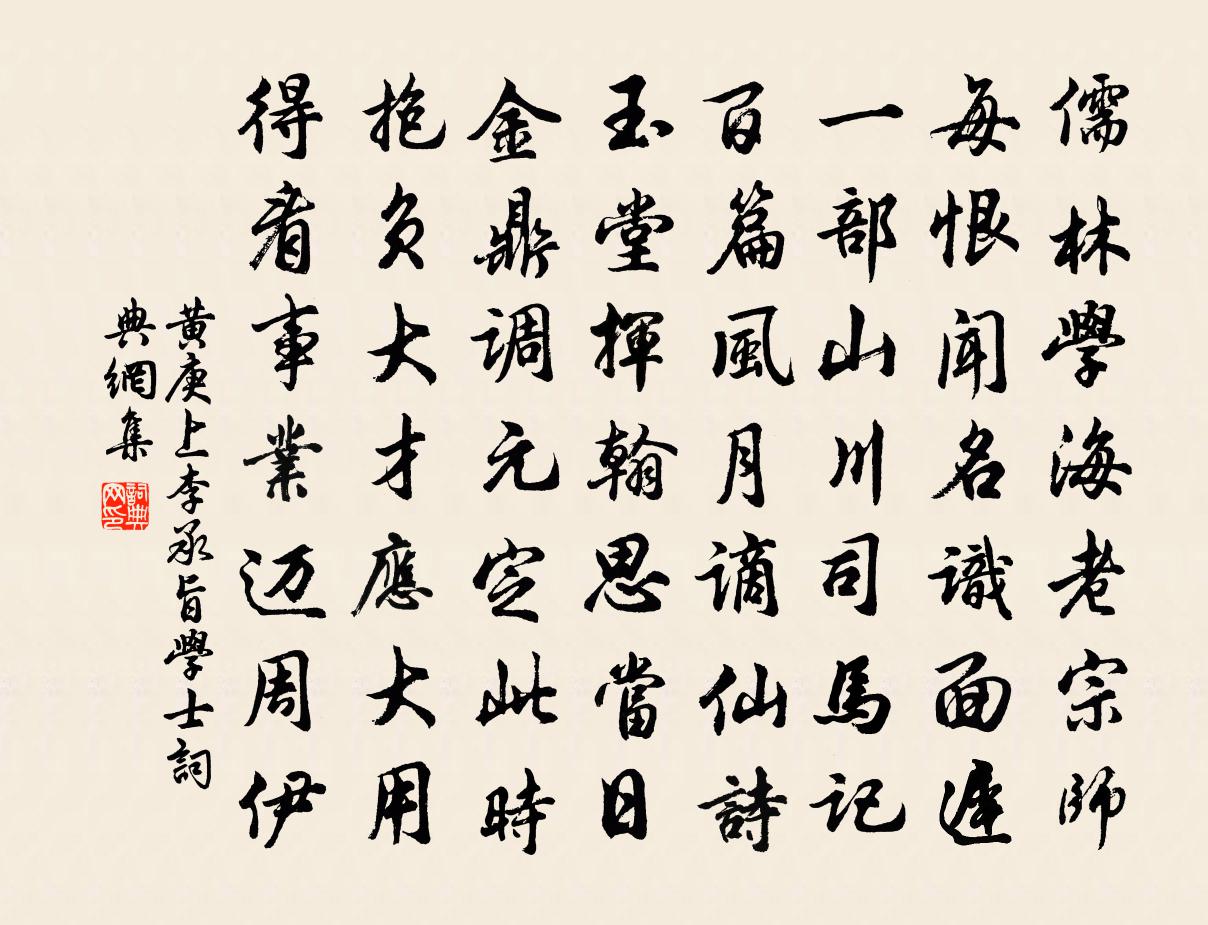 儒林學海老宗師
每恨聞名識面遲
一部山川司馬記
百篇風月謫仙詩
玉堂揮翰思當日
金鼎调元定此時
抱負大才應大用
得看事業迈周伊
黃庚上李承旨學士詞
典網集
詞典
网印